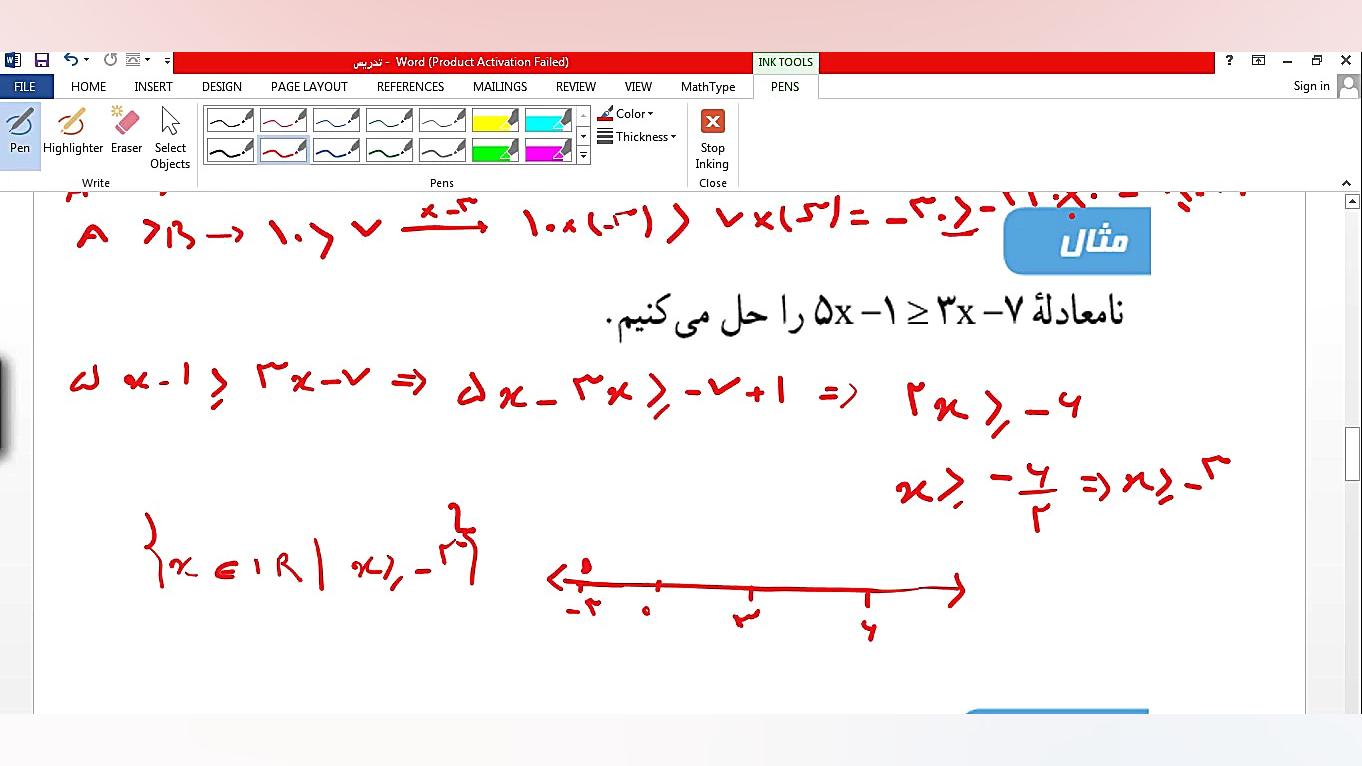 تدریس - Word (Product Activation Failed)
INK TOOLS
Sign in
FILE HOME INSERT DESIGN PAGE LAYOUT REFERENCES MAILINGS REVIEW VIEW MathType PENS
Pen Highlighter Eraser Select Objects
Color
Thickness
Stop Inking
Write Pens Close
A > B → ۱۰ > ۷
مثال
نامعادلهٔ ۵x −۱ ≥ ۳x −۷ را حل می‌کنیم.
۵x - ۱ ≥ ۳x - ۷ ⇒ ۵x - ۳x ≥ -۷ + ۱ ⇒ ۲x ≥ -۶
x ≥ -۶/۲ ⇒ x ≥ -۳
{x ∈ IR | x ≥ -۳}
-۳ ۰ ۳ ۶